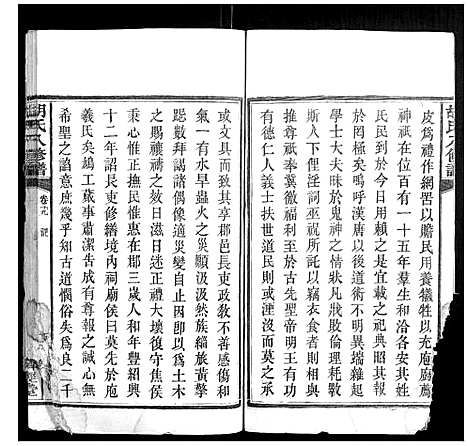 皮為禮作網罟以贍民用養犧牲以充庖廚薦
神祇在位百有一十五年羣生和洽各安其性
民到於今日用賴之是宜載之祀典昭其報享
於罔極矣而世儒溺於流俗不明異端雜起
學士大夫昧於鬼神之情狀凡戕敗倫理耗斁
斯人下俚淫詞巫視所託以竊衣食者則與
推尊祇奉冀徼福利至於古先聖帝明王
有德仁人義士扶世導民之道則湮沒而莫之承
或文具而已故其享郡邑長吏政教不善感傷和
氣一有水旱蟲火之災顛頓汲汲然族緇黃擎
跽數拜謁諸偶像適災變自止因卽以為土木
之賜襪禱之妖日滋日迷正禮大壞莫復守焦侯
秉心惟正撫惠在郡三歲人和年豐紹興
十二年詔長吏修繕境內祠廟侯曰莫先於
義氏矣鳩工葳事肅潔告成有尊報之誠心無
希聖之諂意庶幾乎知古道憫俗失為良二千
胡氏八修譜
卷六 記